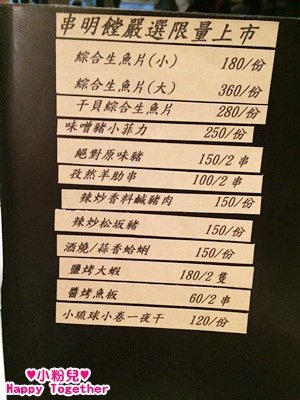 串明鏜嚴選限量上市
綜合生魚片(小) 180/份
綜合生魚片(大) 360/份
干貝綜合生魚片 280/份
味噌豬小菲力 250/份
絕對原味豬 150/2串
孜然羊肋串 100/2串
辣炒香料鹹豬肉 150/份
辣炒松坂豬 150/份
酒燒/蒜香蛤蜊 150/份
鹽烤大蝦 180/2隻
醬烤魚板 60/2串
小琉球小卷一夜干 120/份
♥小粉兒♥
Happy Together